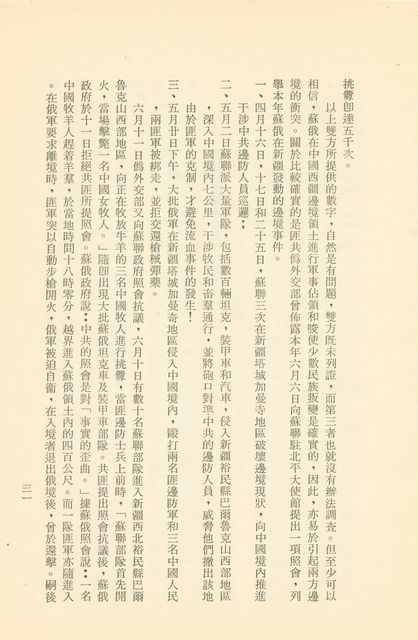 挑釁即達五千次。
以上雙方所提供的數字，自然是有問題，雙方既未列證，而第三者也就沒有辦法調查。但至少可以
相信，蘇俄在中國西疆邊境領土進行軍事佔領和唆使少數民族叛變是確實的，因此，亦易於引起兩方邊
境的衝突。關於比較確實的是匪共僞外交部曾佈露本年六月六日向蘇聯駐北平大使館提出一項照會，列
舉本年蘇俄在新疆發動的邊境事件。
一、四月十六日，十七日和二十五日，蘇聯三次在新疆塔城加曼寺地區破壞邊境現狀，向中國境內推進
干涉中共邊防人員巡邏：
二、五月二日蘇聯派大量軍隊，包括數百輛坦克，裝甲車和汽車，侵入新疆裕民縣巴爾魯克山西部地區
，深入中國境內七公里，干涉牧民和畜羣通行，並將砲口對準中共的邊防人員，威脅他們撤出該地
由於匪軍的克制，才避免流血事件的發生！
三、五月廿日下午，大批俄軍在新疆塔城加曼奇地區侵入中國境內，毆打兩名匪邊防軍和三名中國人民
，兩匪軍被綁走，並拒交還槍械彈藥。
六月十一日僞外交部又向蘇聯政府照會抗議，六月十日有數十名蘇聯部隊進入新疆西北裕民縣巴爾
魯克山西部地區，向正在牧放牛羊的三名中國牧人進行挑釁，當匪邊防士兵上前時，「蘇聯部隊首先開
火，當場擊斃一名中國女牧人。」隨卽出現大批蘇俄坦克車及裝甲車部隊。共匪提出照會抗議後，蘇俄
政府於十一日拒絕共匪所提照會。蘇俄政府說：中共的照會是對「事實的歪曲。」據蘇俄照會說：一名
中國牧羊人趕着羊羣，於當地時間十八時零分，越界進入蘇俄領土內的四百公尺。而一隊匪軍亦隨進入
。在俄軍要求離境時，匪軍突以自動步槍開火，俄軍被迫自衞，在入境者退出俄境後，曾於還擊。嗣後
三一